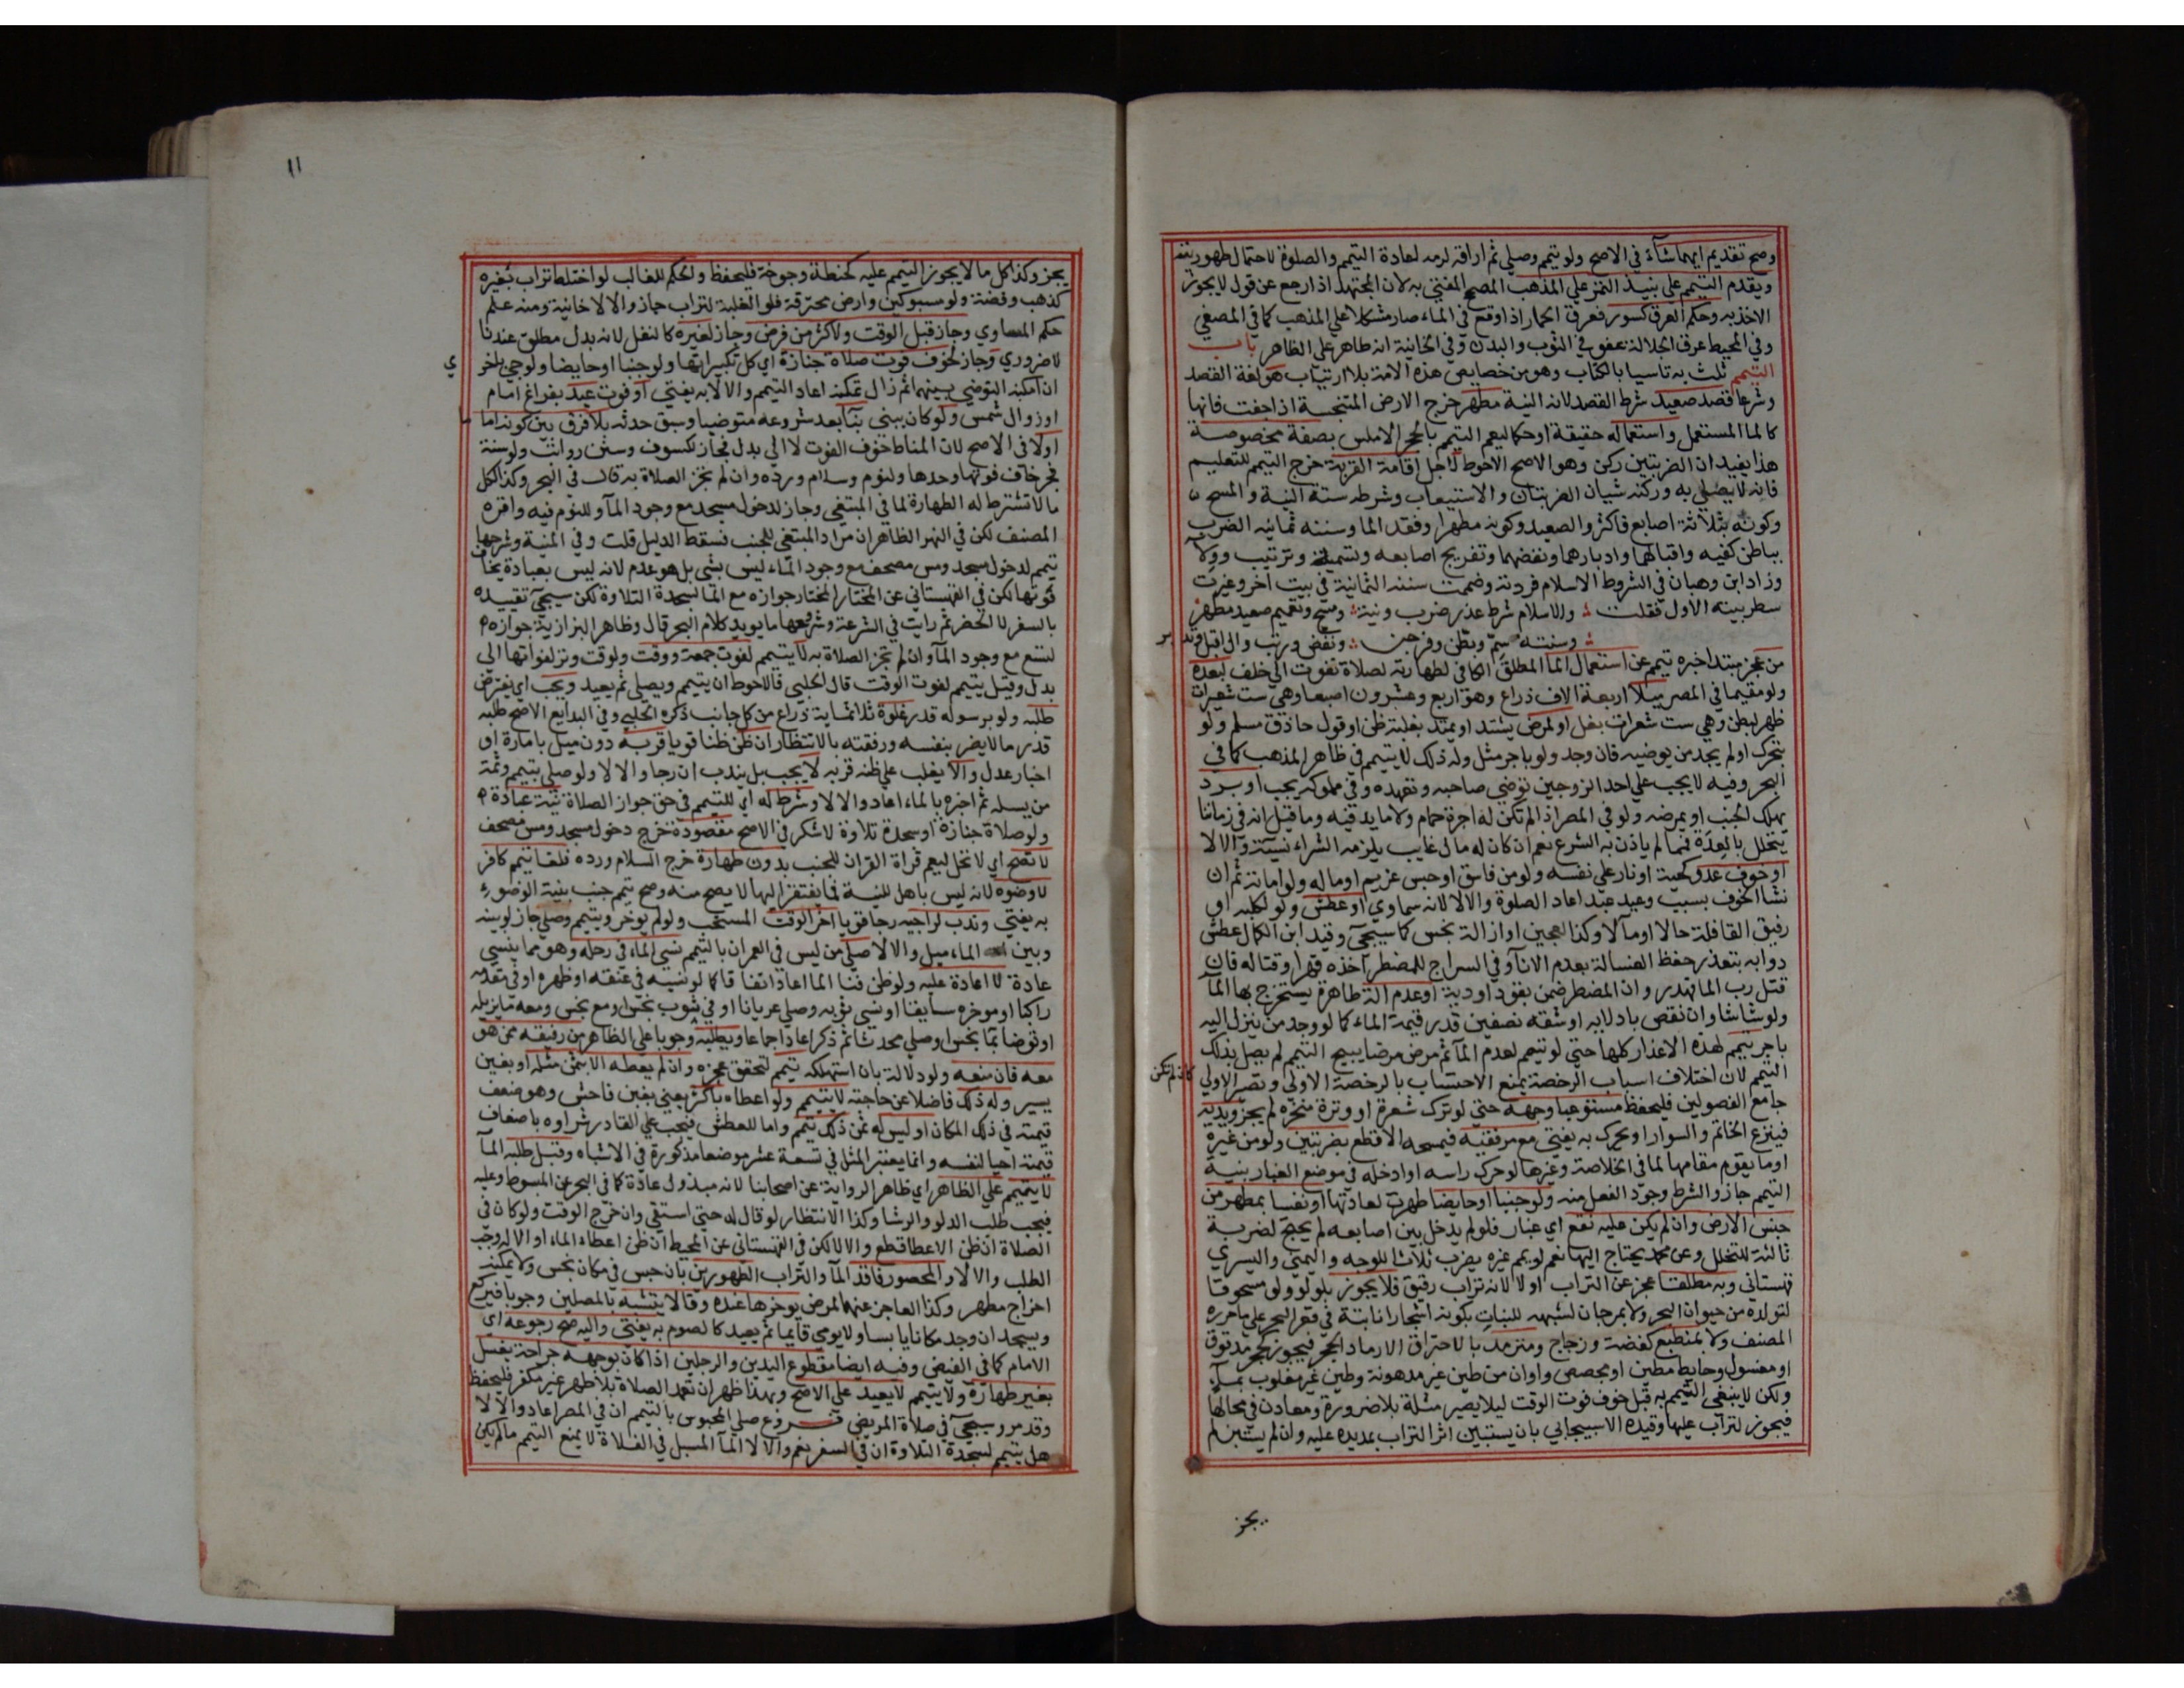 وصح تقديم ايهما شآء في الاصح ولو تيمم وصلي ثم اراقه لزمه لعادة التيمم والصلوة لاحتمال طهوريته
ويقدم التيمم علي بنيذ التمر علي المذهب المصحح المفتي به لان المجتهد اذا رجع عن قول لا يجوز
الاخذ به وحكم العرق كسور فعرق الحمار اذا وقع في الماء صار مشكلا علي المذهب كما في المصفي
وفي المحيط عرق الجلالة عفو في الثوب والبدن وفي الخانية انه طاهر علي الظاهر باب
التيمم ثلث به تاسيا بالكتاب وهو من خصايص هذه الامة بلا ارتياب هو لغة القصد
وشرعا قصد صعيد شرط القصد لانه النية مطهر خرج الارض المتنجسة اذا جفت فانها
كالما المستعمل واستعماله حقيقة او حكما ليعم التيمم بالحجر الاملس بصفة مخصوصة
هذا يفيد ان الضربتين ركن وهو الاصح الاحوط لاجل اقامة القربة خرج التيمم للتعليم
فانه لا يصلي به وركنه شيان الضربتان والاستيعاب وشرطه ستة النية والمسح
وكونه بثلاثة اصابع فاكثر والصعيد وكونه مطهرا وفقد الما وسننه ثمانيه الضرب
بباطن كفيه واقبالهما وادبارهما ونفضهما وتفريج اصابعه وتسمية وترتيب وولآ
وزاد ابن وهبان في الشروط الاسلام فزدته وضممت سننه الثمانية في بيت اخر وغيرت
سطر بيته الاول فقلت والاسلام شرط عذر ضرب ونية ومسح وتعميم صعيد مطهر
وسنته سم وبطن وفرجن ونفض ورتب وال اقبل وتدبر
من عجز مبتدا خبره تيمم عن استعمال الما المطلق الكافي لطهارته لصلاة تفوت الي خلف لبعده
ولو مقيما في المصر ميلا اربعة الاف ذراع وهو اربع وعشرون اصبعا وهي ست شعيرات
ظهر لبطن وهي ست شعرات بغل او لمرض يشتد او يمتد بغلبة ظن او قول حاذق مسلم ولو
بتحرك او لم يجد من يوضيه فان وجد ولو باجر مثل وله ذلك لا يتيمم في ظاهر المذهب كما في
البحر وفيه لا يجب علي احد الزوجين توضي صاحبه وتعهده وفي مملوكه يجب او برد
يهلك الجنب او يمرضه ولو في المصر اذا لم تكن له اجرة حمام ولا ما يدفيه وما قيل انه في زماننا
يتحلل بالعدة فمما لم ياذن به الشرع نعم ان كان له مال غايب يلزمه الشراء نسيئة والا لا
او خوف عدو كحية او نار علي نفسه ولو من فاسق او حبس غريم او ماله ولو امانة ثم ان
نشا الخوف بسبب وعيد عبد اعاد الصلوة والا لا لانه سماوي او عطش ولو لكلبه او
رفيق القافلة حالا او مآلا وكذا لعجين او ازالة نجس كما سيجئ وقيد ابن الكمال عطش
دوابه بتعذر حفظ الغسالة بعدم الانآ وفي السراج للمضطر اخذه قهرا وقتاله فان
قتل رب الما فهدر وان المضطر ضمن بقود او دية او عدم الة طاهرة يستخرج بها المآ
ولو شاشا وان نقص بادلايه او شقه نصفين قدر قيمة الماء كما لو وجد من ينزل اليه
باجر يتيمم لهذه الاعذار كلها حتي لو تيمم لعدم المآ ثم مرض مرضا يبيح التيمم لم يصل بذلك
التيمم لان اختلاف اسباب الرخصة يمنع الاحتساب بالرخصة الاولي وتصير الاولي كان لم تكن
جامع الفصولين فليحفظ مستوعبا وجهه حتي لو ترك شعرة او وترة منخره لم يجز ويديه
فينزع الخاتم والسوار او يحرك به يفتي مع مرفقيه فيمسحه الاقطع بضربتين ولو من غيره
او ما يقوم مقامها لما في الخلاصة وغيرها لو حرك راسه او ادخله في موضع الغبار بنية
التيمم جاز والشرط وجود الفعل منه ولو جنبا او حايضا طهرت لعادتها او نفسا بمطهر من
جنس الارض وان لم يكن عليه نقع اي غبار فلو لم يدخل بين اصابعه لم يحتج لضربة
ثالثة للتخلل وعن محمد يحتاج اليها نعم لو يمم غيره يضرب ثلاثا للوجه واليمني واليسري
قهستاني وبه مطلقا عجز عن التراب او لا لانه تراب رقيق فلا يجوز بلولو ولو مسحوقا
لتولده من حيوان البحر ولا بمرجان لشبهه للنبات بكونه اشجارا نابتة في قعر البحر علي ما حرره
المصنف ولا بمنطبع كفضة وزجاج ومترمد بالاحتراق الا رماد الحجر فيجوز بحجر مدقوق
او مغسول وحايط مطين او مجصص واوان من طين غير مدهونة وطين غير مغلوب بمآء
ولكن لا ينبغي التيمم به قبل خوف فوت الوقت ليلا يصير مثلة بلا ضرورة ومعادن في محالها
فيجوز لتراب عليها وقيده الاسبيجابي بان يستبين اثر التراب بمد يده عليه وان لم يستبن لم
يجز
١١
يجز وكذا كل ما لا يجوز التيمم عليه كحنطة وجوخة فليحفظ والحكم للغالب لو اختلط تراب بغيره
كذهب وفضة ولو مسبوكين وارض محترقة فلو الغلبة لتراب جاز والا لا خانية ومنه علم
حكم المساوي وجاز قبل الوقت ولاكثر من فرض وجاز لغيره كالنفل لانه بدل مطلق عندنا
لا ضروري وجاز لخوف فوت صلاة جنازة اي كل تكبيراتها ولو جنبا او حايضا ولو جيئ باخري
ان امكنه التوضي بينهما ثم زال تمكنه اعاد التيمم والا لا به يفتي او فوت عيد بفراغ امام
او زوال شمس ولو كان يبني بنآ بعد شروعه متوضيا وسبق حدثه بلا فرق بين كونه اماما
اولا في الاصح لان المناط خوف الفوت لا الي بدل فجاز لكسوف وسنن رواتب ولو سنة
فجر خاف فوتها وحدها ولنوم وسلام ورده وان لم تجز الصلاة به قال في البحر وكذا لكل
ما لا تشترط له الطهارة لما في المبتغي وجاز لدخول مسجد مع وجود المآ وللنوم فيه واقره
المصنف لكن في النهر الظاهر ان مراد المبتغي للجنب فسقط الدليل قلت وفي المنية وشرحها
تيمم لدخول مسجد ومس مصحف مع وجود الماء ليس بشي بل هو عدم لانه ليس بعبادة يخاف
فوتها لكن في القهستاني عن المختار المختار جوازه مع الما لسجدة التلاوة لكن سيجئ تقييده
بالسفر لا الحضر ثم رايت في الشرعة وشروحها ما يويد كلام البحر قال وظاهر البزازية جوازه
لتسع مع وجود المآ وان لم تجز الصلاة به لا يتيمم لفوت جمعة ووقت ولو وتر لفواتها الي
بدل وقيل يتيمم لفوت الوقت قال الحلبي فالاحوط ان يتيمم ويصلي ثم يعيد ويجب اي يفترض
طلبه ولو برسوله قدر غلوة ثلاثماية ذراع من كل جانب ذكره الحلبي وفي البدايع الاصح طلبه
قدر ما لا يضر بنفسه ورفقته بالانتظار ان ظن ظنا قويا قربه دون ميل بامارة او
اخبار عدل والا يغلب علي ظنه قربه لا يجب بل يندب ان رجا والا لا ولو صلي بتيمم وثمة
من يسله ثم اخبره بالماء اعاد والا لا وشرط له اي للتيمم في حق جواز الصلاة نية عبادة
ولو صلاة جنازة او سجدة تلاوة لا شكر في الاصح مقصودة خرج دخول مسجد ومس مصحف
لا تصح اي لا تحل ليعم قراة القران للجنب بدون طهارة خرج السلام ورده فلغا تيمم كافر
لا وضوه لانه ليس باهل للنية فما يفتقر اليها لا يصح منه وصح تيمم جنب بنية الوضوء
به يفتي وندب لراجيه رجا قويا اخر الوقت المستحب ولو لم يوخر وتيمم وصلي جاز لو بينه
وبين الماء ميل والا لا صلي من ليس في العمران بالتيمم نسي الماء في رحله وهو مما ينسي
عادة لا اعادة عليه ولو ظن فنا الما اعاد اتفاقا كما لو نسيه في عنقه او ظهره او في مقدمه
راكبا او موخره سايقا او نسي ثوبه وصلي عريانا او في ثوب نجس او مع نجس ومعه ما يزيله
او توضا بما نجس او صلي محدثا ثم ذكر اعاد اجماعا ويطلبه وجوبا علي الظاهر من رفيقه ممن هو
معه فان منعه ولو دلالة بان استهلكه تيمم لتحقق عجزه وان لم يعطه الا بثمن مثله او بغبن
يسير وله ذلك فاضلا عن حاجته لا يتيمم ولو اعطاه باكثر يعني بغبن فاحش وهو ضعف
قيمته في ذلك المكان او ليس له ثمن ذلك تيمم واما للعطش فيجب علي القادر شراوه باضعاف
قيمته احيا لنفسه وانما يعتبر المثل في تسعة عشر موضعا مذكورة في الاشباه وقبل طلبه المآ
لا يتيمم علي الظاهر اي ظاهر الرواية عن اصحابنا لانه مبذول عادة كما في البحر عن المبسوط وعليه
فيجب طلب الدلو والرشا وكذا الانتظار لو قال له حتي استقي وان خرج الوقت ولو كان في
الصلاة ان ظن الاعطا قطع والا لا لكن في القهستاني عن المحيط ان ظن اعطاء الماء او الالة وجب
الطلب والا لا والمحصور فاقد المآ والتراب الطهورين بان حبس في مكان نجس ولا يمكنه
اخراج مطهر وكذا العاجز عنهما لمرض يوخرها عنده وقالا يتشبه بالمصلين وجوبا فيركع
ويسجد ان وجد مكانا يابسا ولا يومي قايما ثم يعيد كالصوم به يفتي واليه صح رجوعه اي
الامام كما في الفيض وفيه ايضا مقطوع اليدين والرجلين اذا كان بوجهه جراحة يصلي
بغير طهارة ولا يتيمم لا يعيد علي الاصح وبهذا ظهر ان تعمد الصلاة بلا طهر غير مكفر فليحفظ
وقد مر وسيجئ في صلاة المريض فروع صلي المحبوس بالتيمم ان في المصر اعاد والا لا
هل يتيمم لسجدة التلاوة ان في السفر نعم والا لا المآ المسبل في الفلاة لا يمنع التيمم ما لم يكن